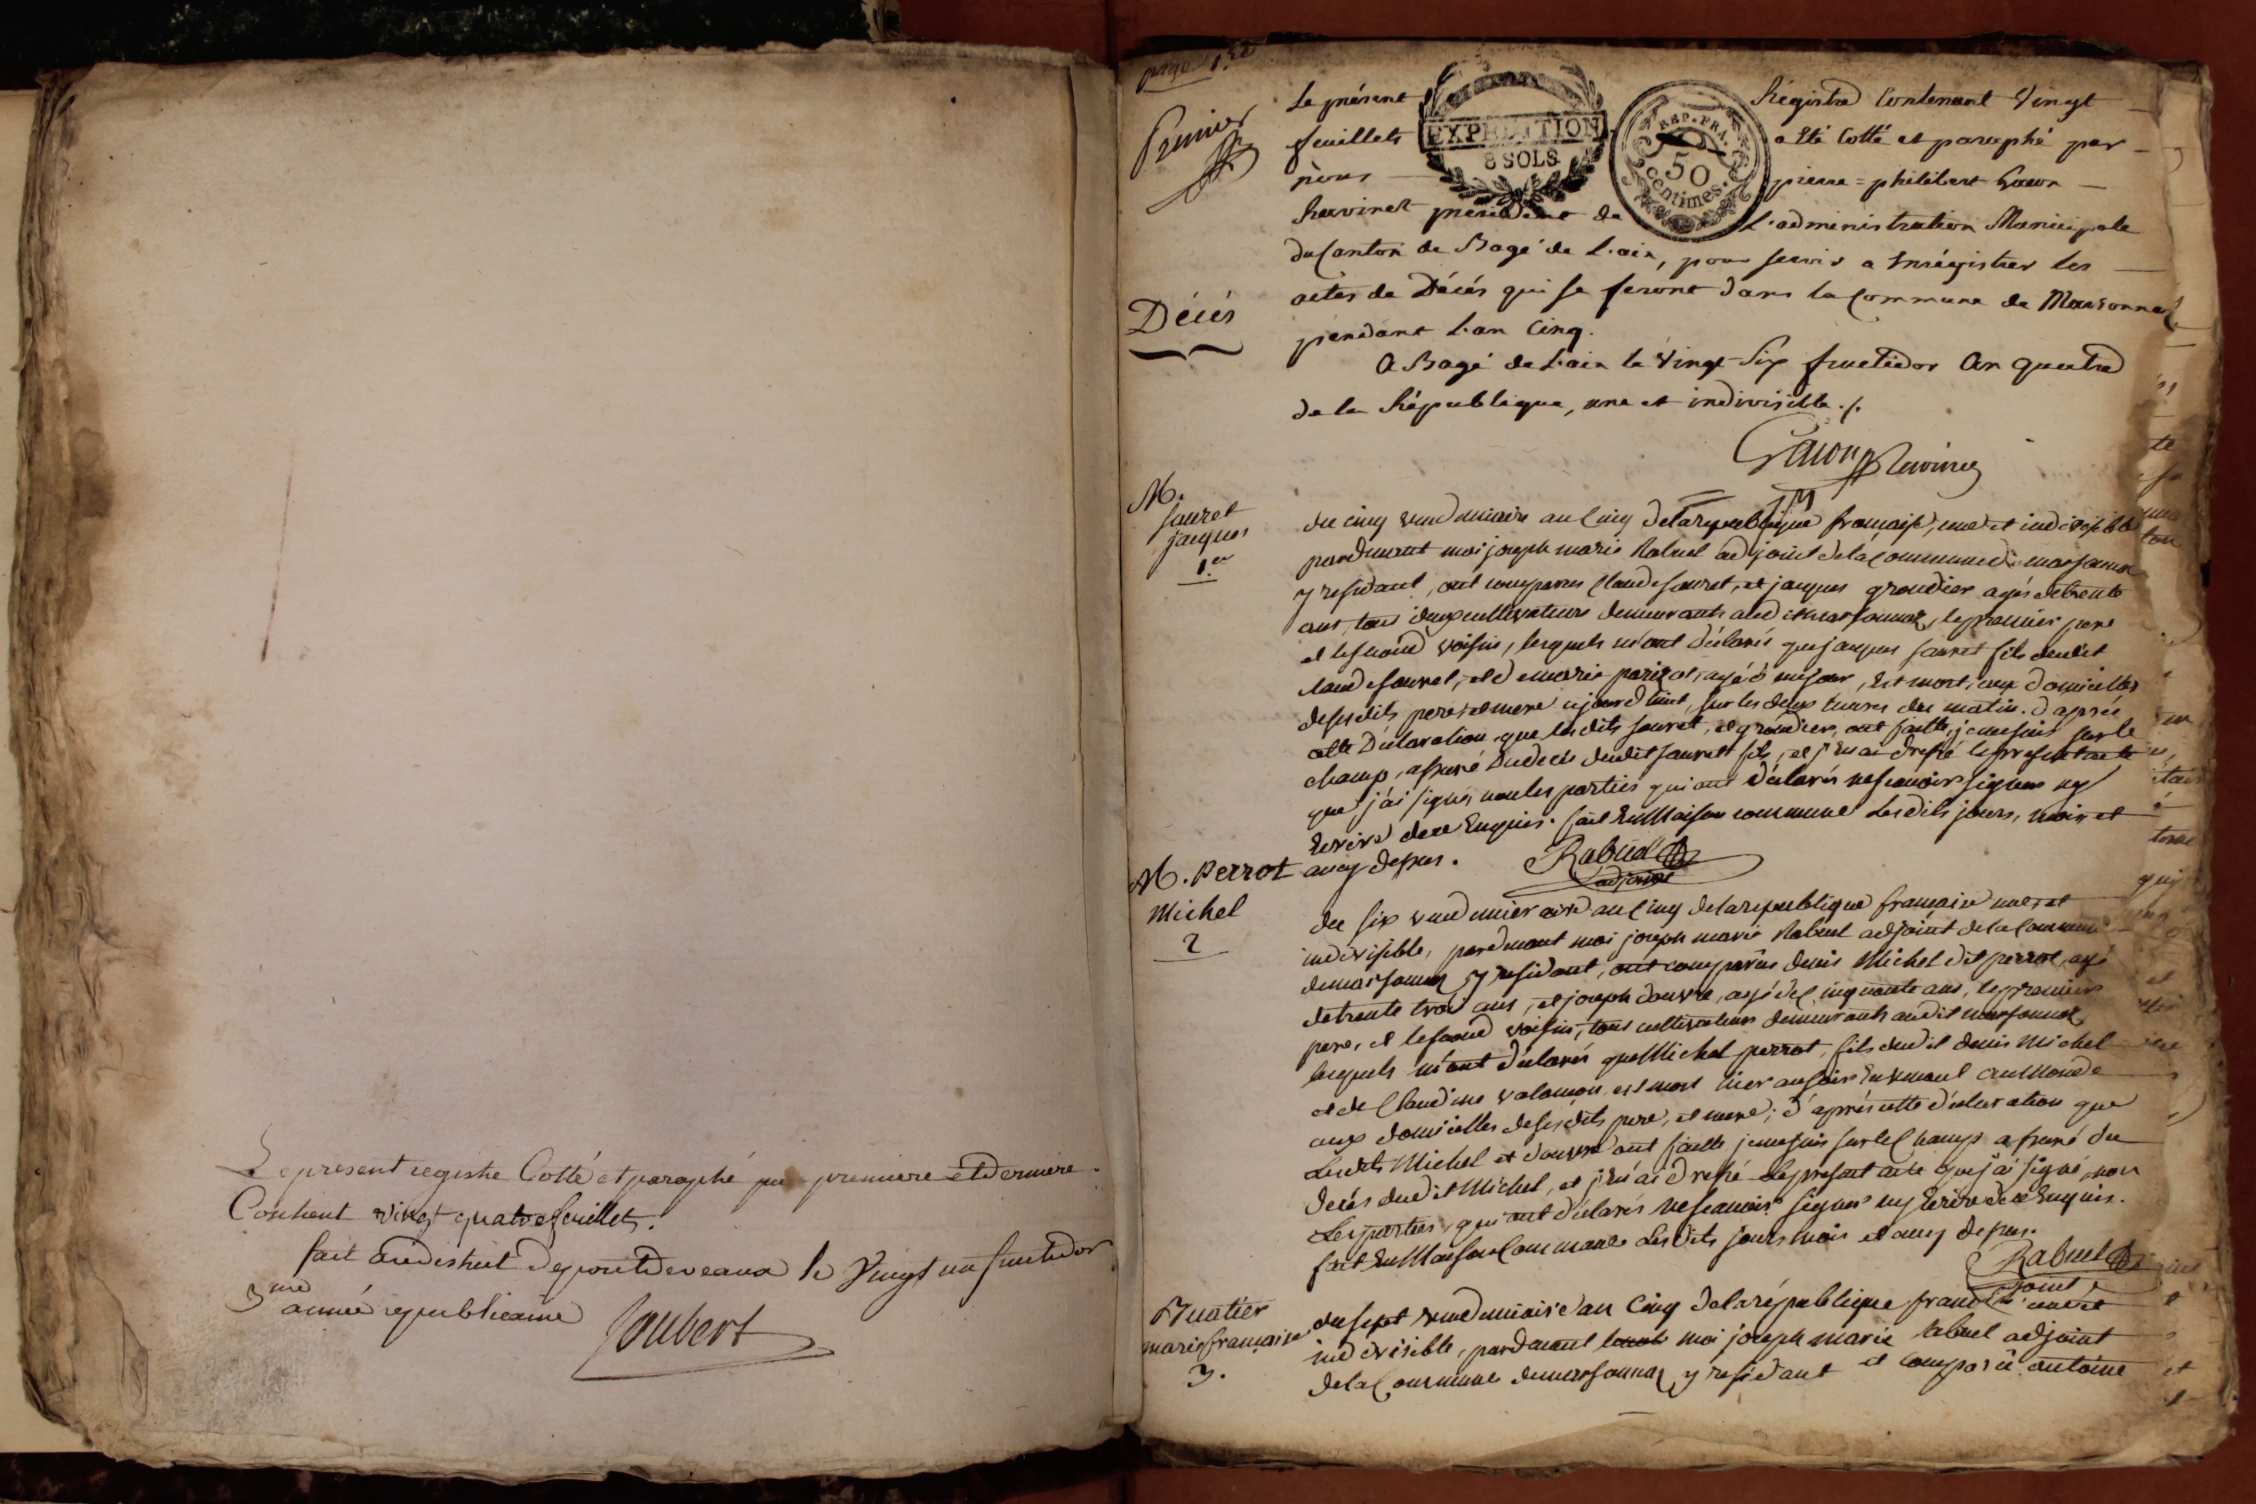 Le present registre Cotté et paraphé par premiere et derniere
Contient vingt quatre feuillets.
fait au district de pontdeveaux le Vingt un fructidor
3me année republicaine Joubert
page 1re
Premier
Le présent Régistre Contenant Vingt
EXPEDITION
8 SOLS
REP. FRA.
50
centimes.
feuillets a été Cotté et paraphé par
nous pierre = philibert
président de L'administration Municipale
du Canton de Bagé de L'ain, pour servir a Enrégistrer les
Décés
actes de Décés qui se feront dans la Commune de Marsonnas
pendant L'an Cinq.
A Bagé de L'ain le Vingt-Six fructidor An quatre
de la République, une et indivisible ./.
M.
Sauret
jacques
1.er
du cinq vendemiaire an Cinq de la republique française, une et indivisible
pardevant moi joseph marie Rabuel adjoint de la Commune de marsonnas
y residant, ont comparus Claude Sauret, et jacques grondier agés de trente
ans, tous deux cultivateurs demeurants audit marsonnas, le premier pere
et le second voisin, lesquels m'ont déclarés que jacques Sauret fils dudit
Claude Sauret, et de marie agé d'un jour, est mort, aux domicilles
de sesdits pere et mere aujourd'huit, sur les deux heures du matin. d'aprés
cette Déclaration que lesdits Sauret, et grondier ont faitte, je me suis sur le
champ, assuré du decés dudit Sauret fils, et j'en ai dressé le present acte
que j'ai signé, non les parties qui ont déclarés ne scavoir signer ny
Ecrire de ce Enquis. fait En Maison commune Lesdits jours, mois et
an cy dessus. Rabuel
adjoint
M. Perrot
Michel
2
du six vendemieraire an Cinq de la republique française une et
indivisible, pardevant moi joseph marie Rabuel adjoint de la Commune
de marsonnas y residant, ont comparus denis Michel dit perrot, agé
de trente trois ans, et joseph agé de Cinquante ans, le premier
pere, et le second voisin, tous cultivateurs demeurants audit marsonnas
lesquels m'ont déclarés que Michel perrot, fils dudit denis Michel
et de Claudine est mort hier au soir En venant au Monde
aux domicilles de sesdits pere, et mere; d'aprés cette déclaration que
Lesdits Michel et ont faitte je me suis sur le Champ assuré du
decés dudit Michel, et j'en ai dressé Le present acte que j'ai signé, non
Les parties, qui ont déclarés ne scavoir signer ny Ecrire de ce Enquis.
fait En Maison Commune Lesdits jours mois et an cy dessus.
Rabuel
adjoint
marie française
3.
du sept vendemiaire an Cinq de la république française une et
indivisible, pardevant moi joseph marie Rabuel adjoint
de la Commune de marsonnas y residant et comparû antoine